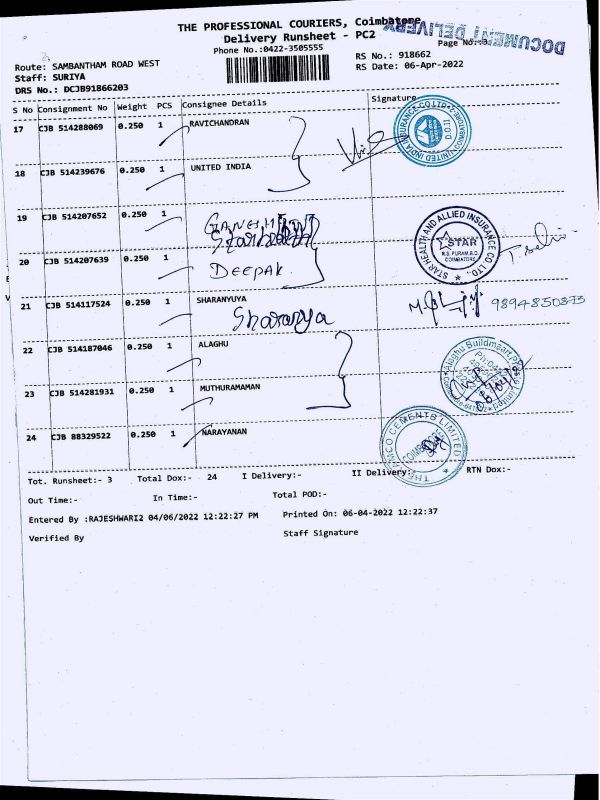 THE PROFESSIONAL COURIERS, Coimbatore
Delivery Runsheet - PC2
DOCUMENT DELIVERY
Phone No.:0422-3505555
Page No:-
Route: SAMBANTHAM ROAD WEST
Staff: SURIYA
DRS No.: DCJB91866203
RS No.: 918662
RS Date: 06-Apr-2022
S No Consignment No Weight PCS Consignee Details Signature
17 CJB 514288069 0.250 1 RAVICHANDRAN
18 CJB 514239676 0.250 1 UNITED INDIA
UNITED INDIA INSURANCE CO LTD
19 CJB 514207652 0.250 1 GANESH
Starhealth
20 CJB 514207639 0.250 1 DEEPAK.
STAR HEALTH AND ALLIED INSURANCE CO. LTD.
STAR
R.S. PURAM B.O
COIMBATORE
T. selvi
21 CJB 514117524 0.250 1 SHARANYUYA
Sharanya
9894850873
22 CJB 514187046 0.250 1 ALAGHU
23 CJB 514281931 0.250 1 MUTHURAMAMAN
Alaghu Buildmaart
24 CJB 88329522 0.250 1 NARAYANAN
CEMENTS LIMITED
Tot. Runsheet:- 3 Total Dox:- 24 I Delivery:- II Delivery:- RTN Dox:-
Out Time:- In Time:- Total POD:-
Entered By :RAJESHWARI2 04/06/2022 12:22:27 PM Printed On: 06-04-2022 12:22:37
Verified By Staff Signature